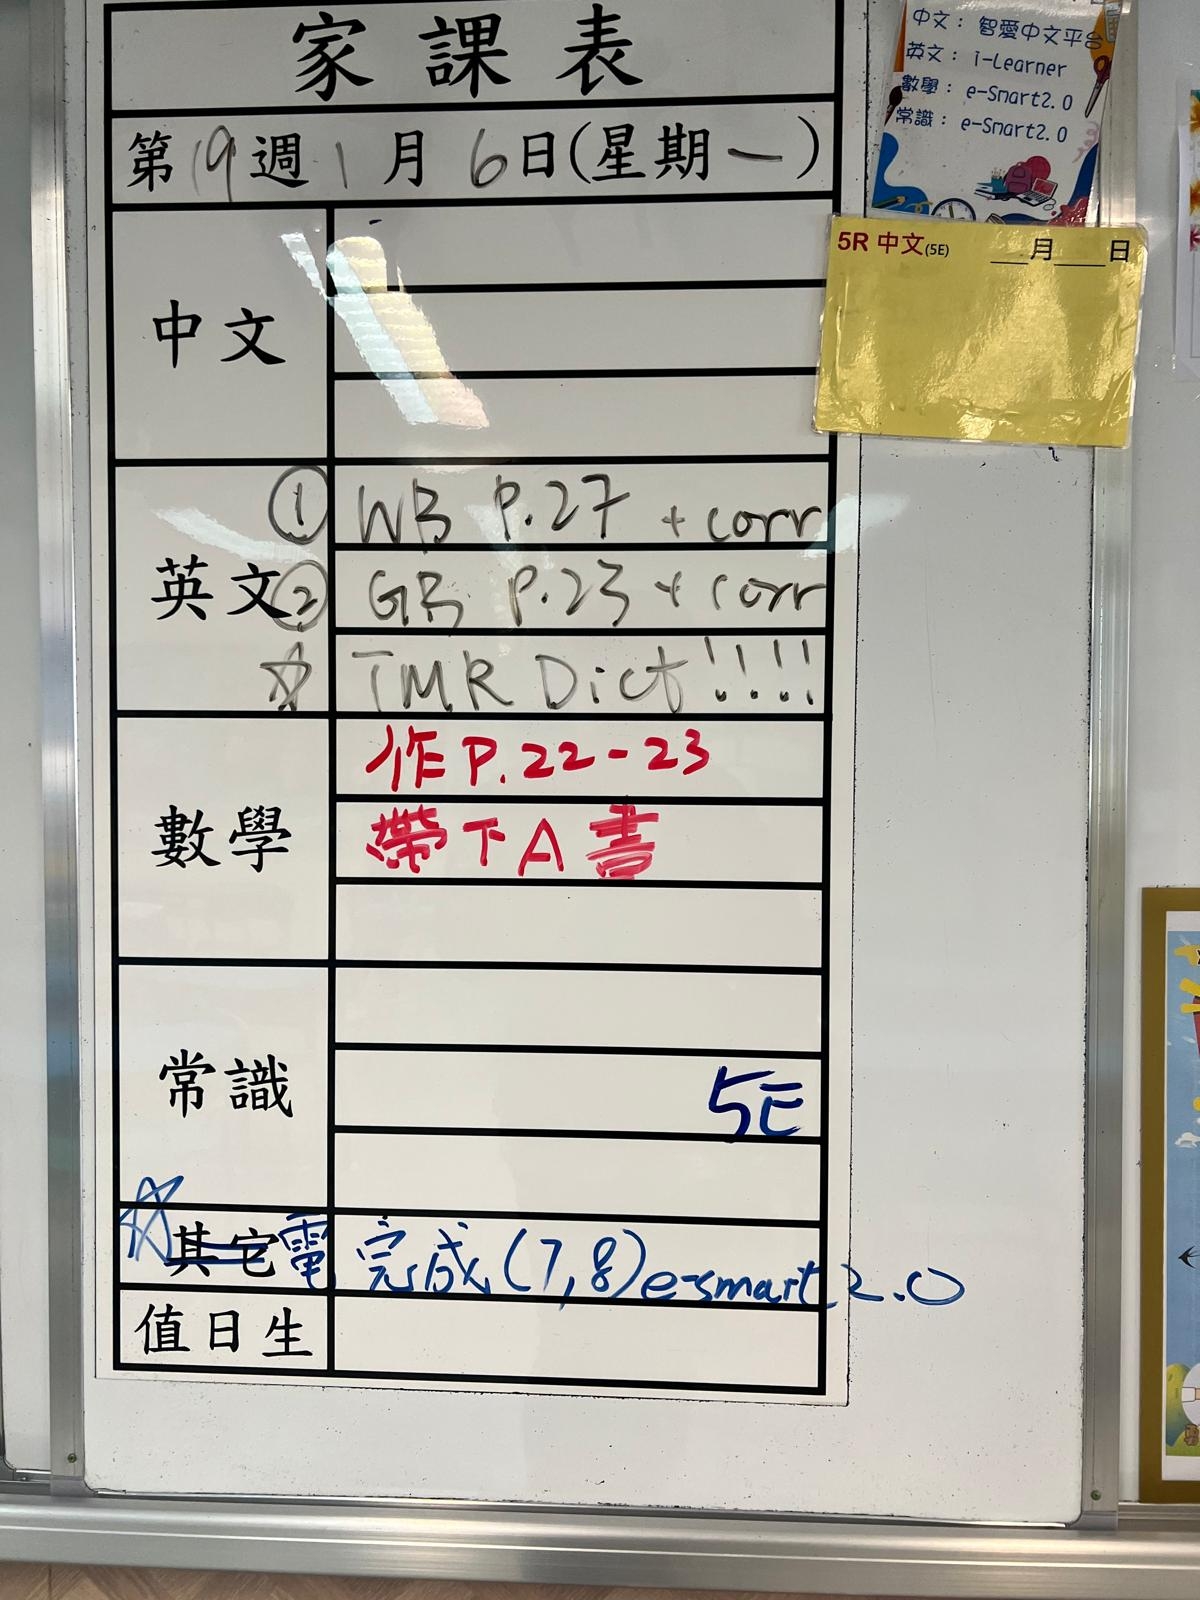 家課表
第19週1月6日(星期一)
中文
英文
① WB P.27 + corr
② GB P.23 + corr
☆ TMR Dict!!!!
數學
作P.22-23
帶下A書
常識
5E
☆其它電 完成(7,8)e-smart 2.0
值日生
中文：智愛中文平台
英文：i-Learner
數學：e-Smart2.0
常識：e-Smart2.0
5R 中文(5E) ___月___日